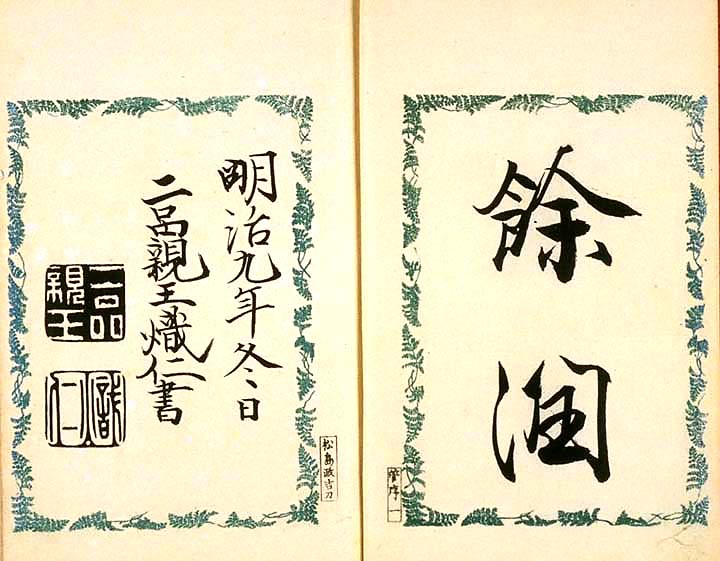 餘潤
序一
明治九年冬日
二品親王熾仁書
二品
親王
熾仁
松島政吉刀